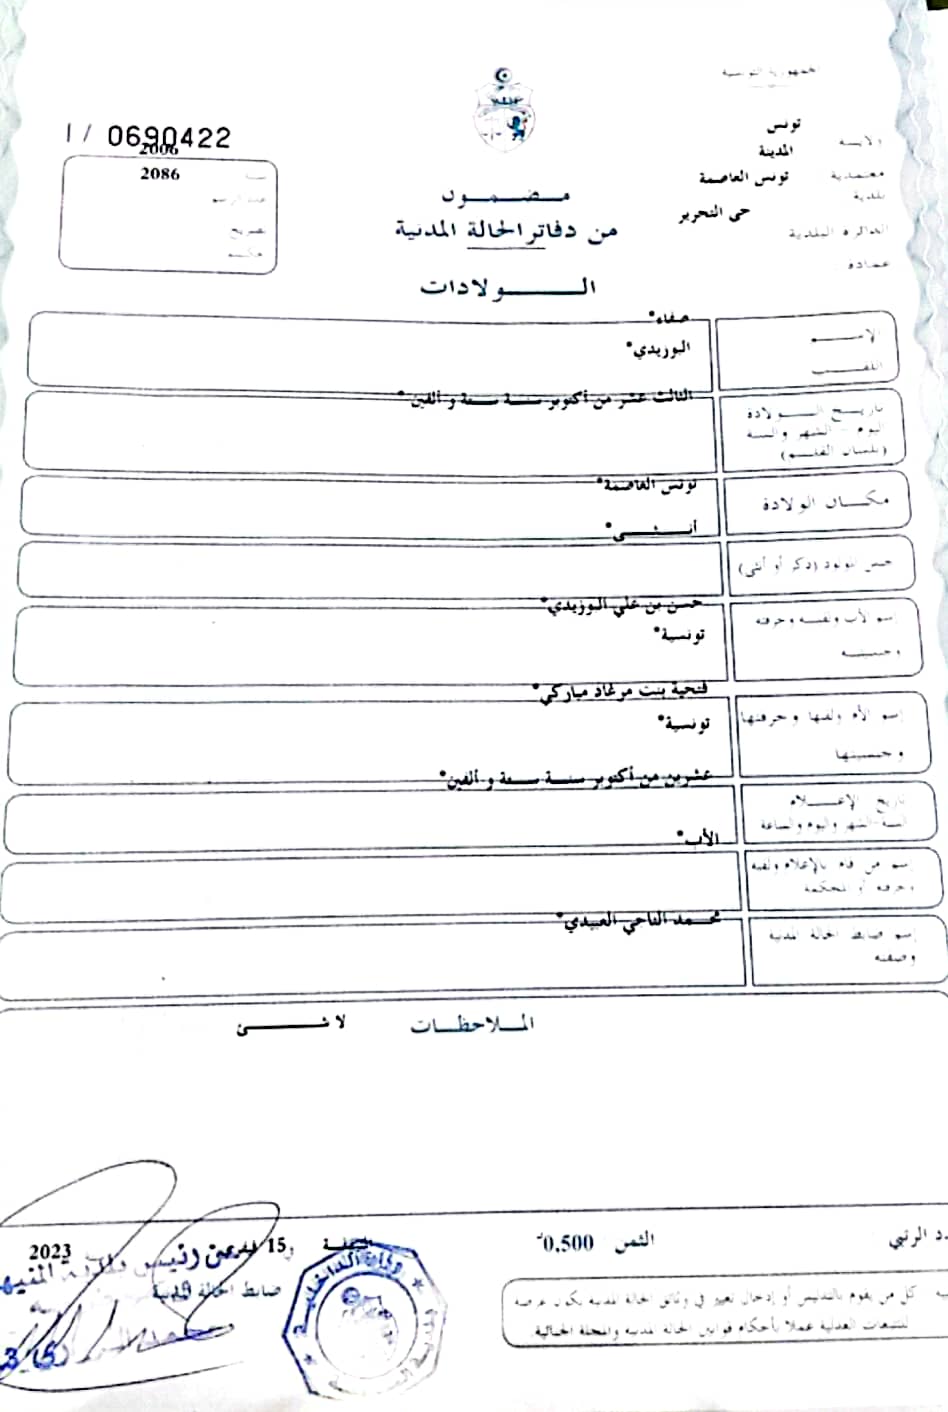 الجمهورية التونسية
ا / 0690422
2006
2086
سنة
عدد الرسم
تصريح
حكم
الولاية تونس
معتمدية المدينة
بلدية تونس العاصمة
الدائرة البلدية حي التحرير
عمادة
مضمون
من دفاتر الحالة المدنية
الولادات
الإسم صفاء*
اللقب البوزيدي*
تاريخ الولادة الثالث عشر من أكتوبر سنة ستة و ألفين*
اليوم - الشهر والسنة
(بلسان القلم)
مكان الولادة تونس العاصمة*
جنس المولود (ذكر أو أنثى) أنثى*
إسم الأب ولقبه وحرفته حسن بن علي البوزيدي*
وجنسيته تونسية*
إسم الأم ولقبها وحرفتها فتحية بنت مرغاد مباركي*
وجنسيتها تونسية*
تاريخ الإعلام عشرين من أكتوبر سنة ستة و ألفين*
السنة-الشهر واليوم والساعة
إسم من قام بالإعلام ولقبه الأب*
وحرفته أو المحكمة
إسم ضابط الحالة المدنية محمد الناجي العبيدي*
وصفته
الملاحظات لا شئ
الرتبي
الثمن 0.500
15
2023
ضابط الحالة المدنية
عن رئيس بلدية
وزارة الداخلية
كل من يقوم بالتدليس أو إدخال تغيير في وثائق الحالة المدنية يكون عرضة
للتتبعات العدلية عملا بأحكام قوانين الحالة المدنية والمجلة الجنائية